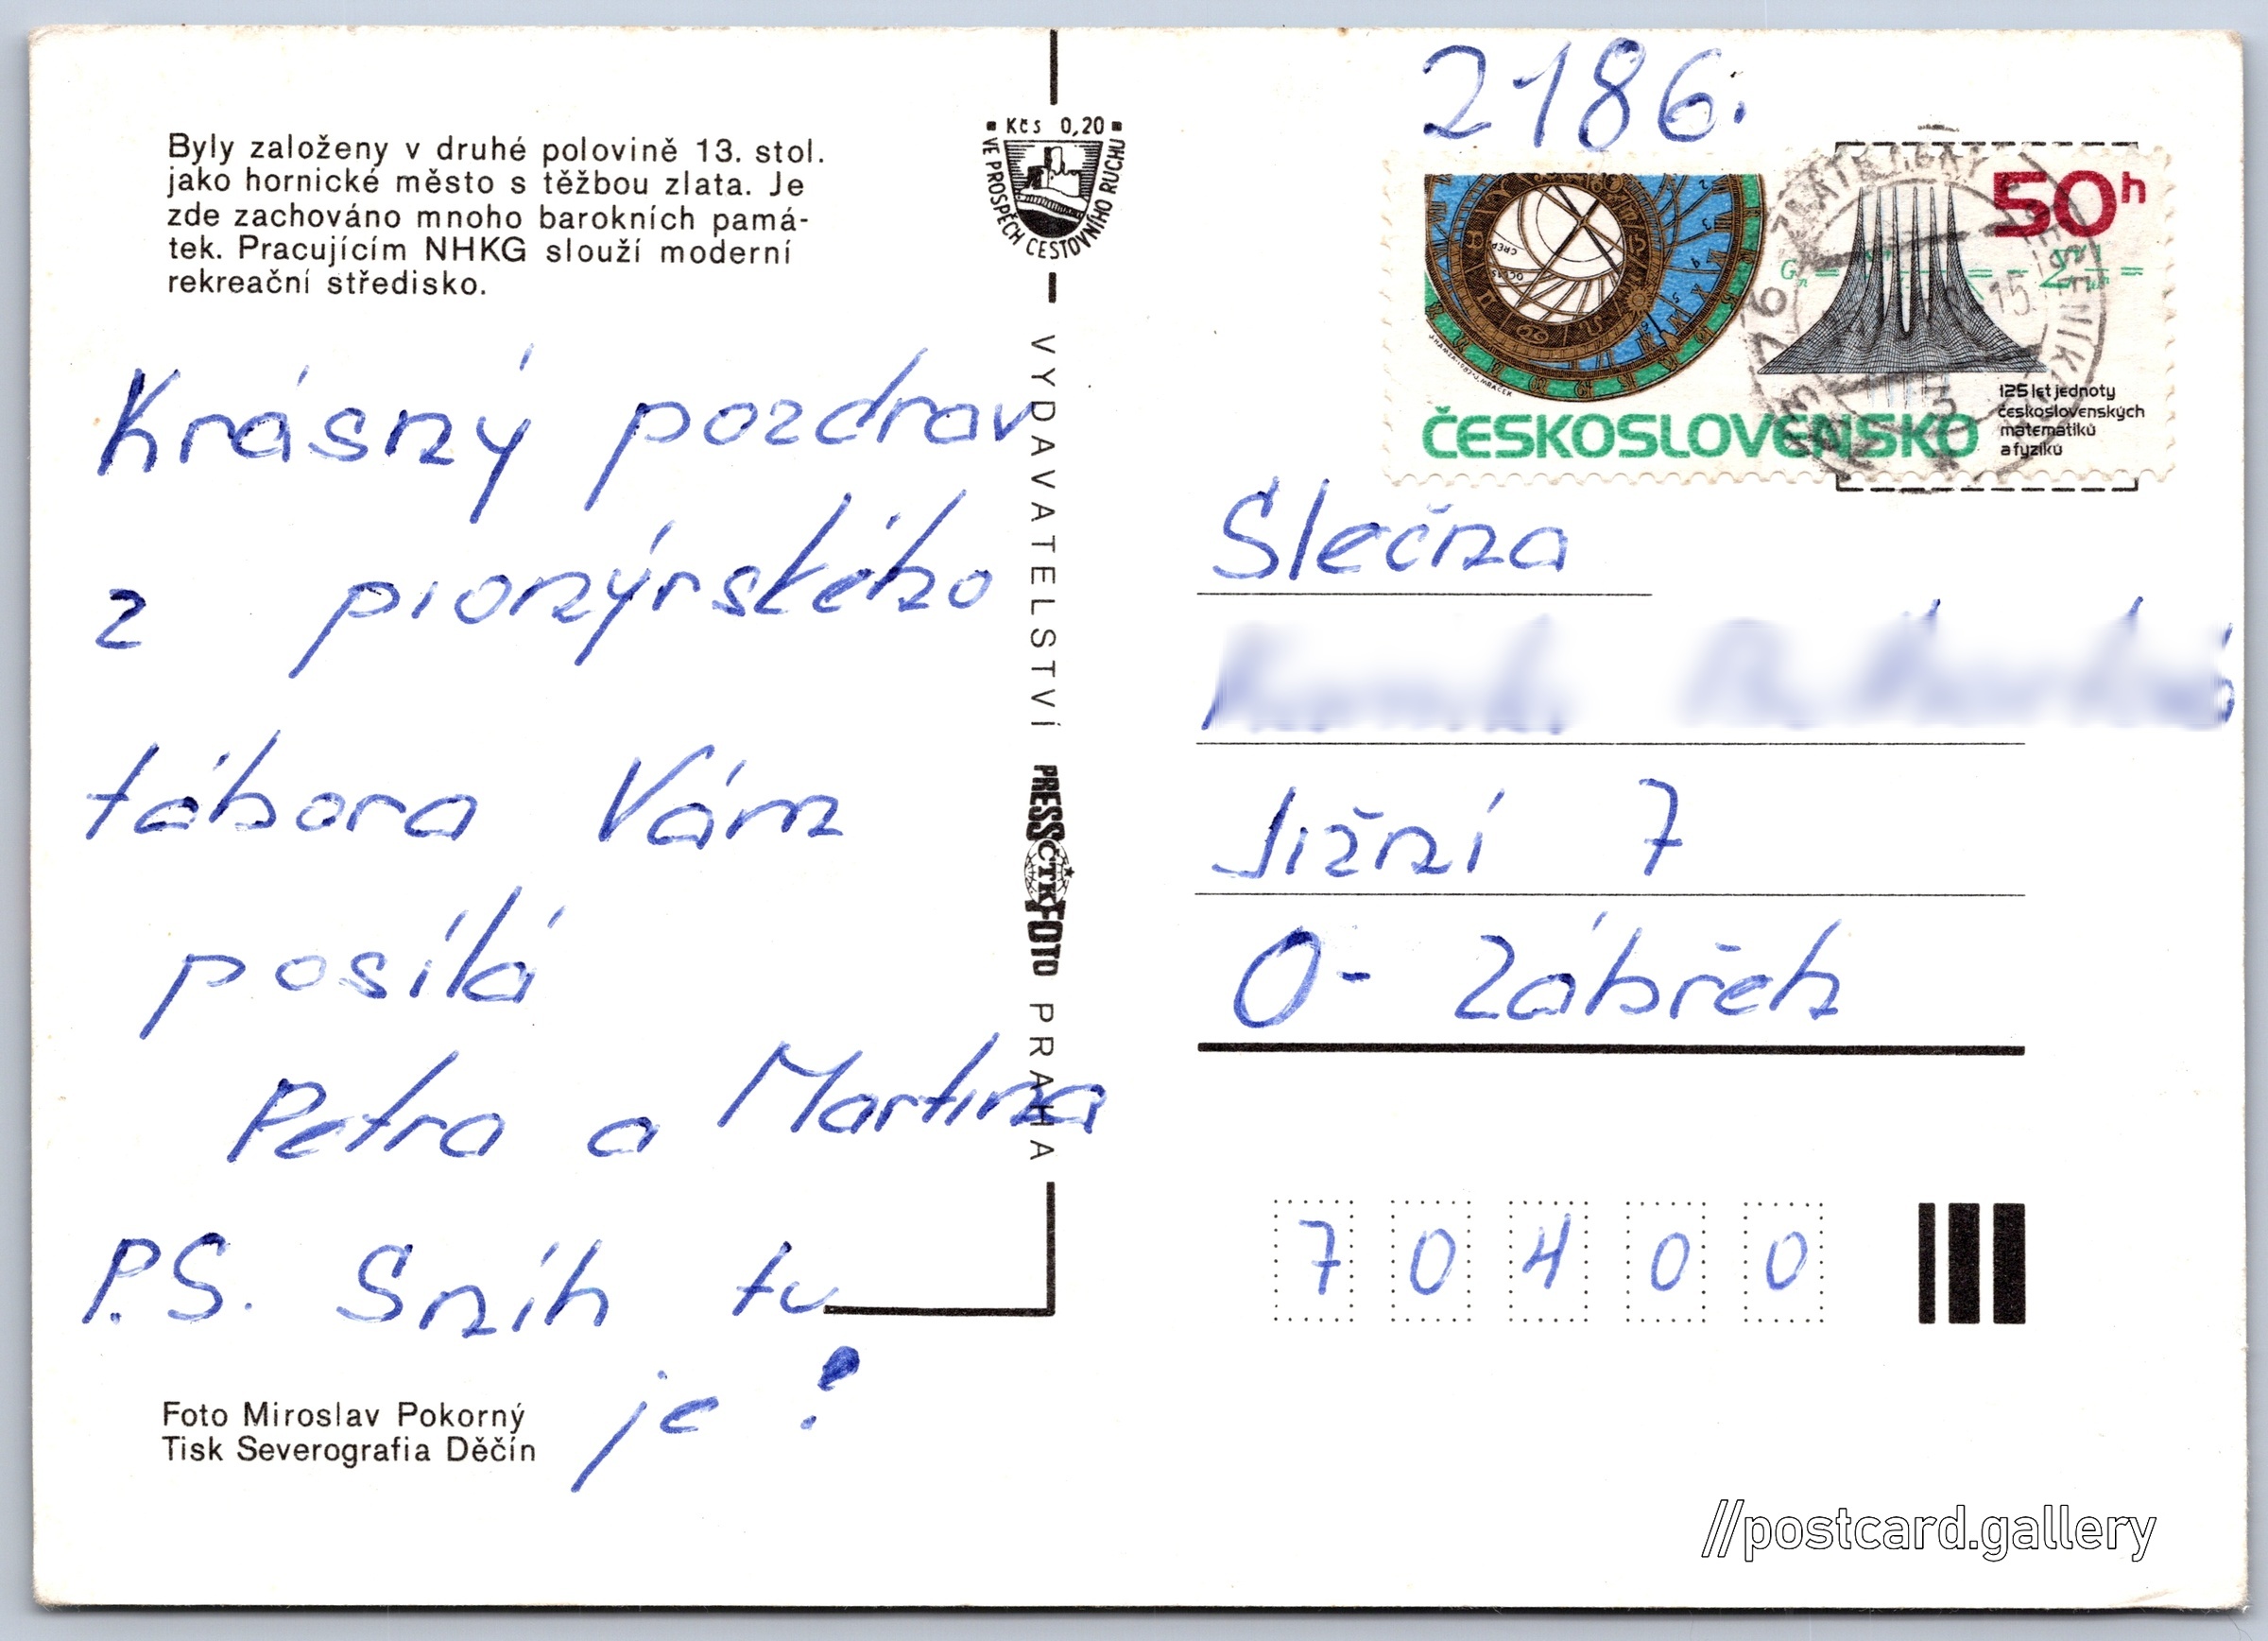 Byly založeny v druhé polovině 13. stol.
jako hornické město s těžbou zlata. Je
zde zachováno mnoho barokních pamá-
tek. Pracujícím NHKG slouží moderní
rekreační středisko.
Krásný pozdrav
z pionýrského
tábora Vám
posílá
Petra a Martina
P.S. Sníh tu
je!
Foto Miroslav Pokorný
Tisk Severografia Děčín
Kčs 0,20
VE PROSPĚCH CESTOVNÍHO RUCHU
VYDAVATELSTVÍ PRESSFOTO PRAHA
ČTK
2186.
50h
ČESKOSLOVENSKO
125 let jednoty
československých
matematiků
a fyziků
Slečna
Jižní 7
O- Zábřeh
70400
//postcard.gallery